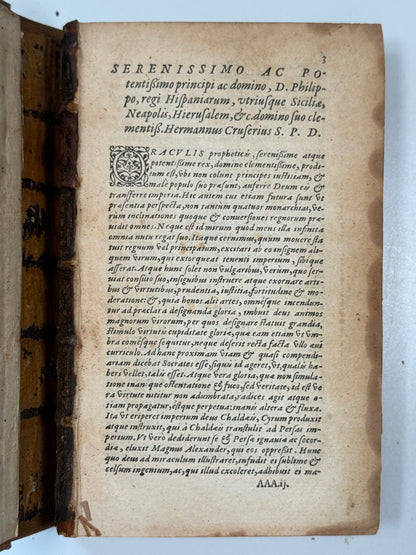 3
SERENISSIMO AC PO-
tentißimo principi ac domino, D. Philip-
po, regi Hispaniarum, vtriusque Siciliæ,
Neapolis, Hierusalem, &c. domino suo cle-
mentiß. Hermannus Cruserius S. P. D.
ORACVLIS propheticis, serenißime atque
potentißime rex, domine clementißime, prodi-
tum est, vbi non colunt principes iustitiam, &
male populo suo præsunt, auferre Deum eis &
transferre imperia. Hic autem cui etiam futura sunt vt
præsentia perspecta, non tantùm quatuor monarchias, ve-
rum inclinationes quoque & conuersiones regnorum præ-
uidit omnes. Neque sic mirum quod mens illa infinita
omnia nutu regat suo. Itaque cernimus, quum mouere sta-
tuit regnum vel principatum, excitari ab eo insignem ali-
quem virum, qui extorqueat tenenti imperium, sibique
asserat. Atque hunc solet non vulgaribus, verùm, quo ser-
uiat consilio suo, insignibus instruere atque exornare arti-
bus & virtutibus, prudentia, iustitia, fortitudine & mo-
deratione: &, quia honos alit artes, omnésque incendun-
tur ad præclara designanda gloria, imbuit deus animos
magnorum virorum, per quos designare statuit grandia,
stimulo virtutis cupiditate gloriæ, quæ eam etiam vt vm-
bra comésque sequitur, neque deserit recta facta vllo æui
curriculo. Ad hanc proximam viam & quasi compendi-
ariam dicebat Socrates esse, siquis id ageret, vt, qualis ha-
beri vellet, talis esset. Atque vera gloria, quæ non simula-
tione inani que ostentatione & fuco, sed veritate, id est ve
ra virtute nititur non adumbrata, radices agit atque e-
tiam propagatur, éstque perpetua: inanis altera & fluxa.
Ita vt eriperet imperium deus Chaldæis, Cyrum produxit
atque instruxit, qui à Chaldæis transtulit ad Persas im-
perium. Vt vero dediderunt se & Persæ ignauiæ ac socor-
diæ, eluxit Magnus Alexander, qui eos oppreßit. Hunc
quo deus ad miraculum illustraret, infudit ei sublime &
celsum ingenium, ac, qui illud excoleret, adhibuit ei ma-
AAA.ij.